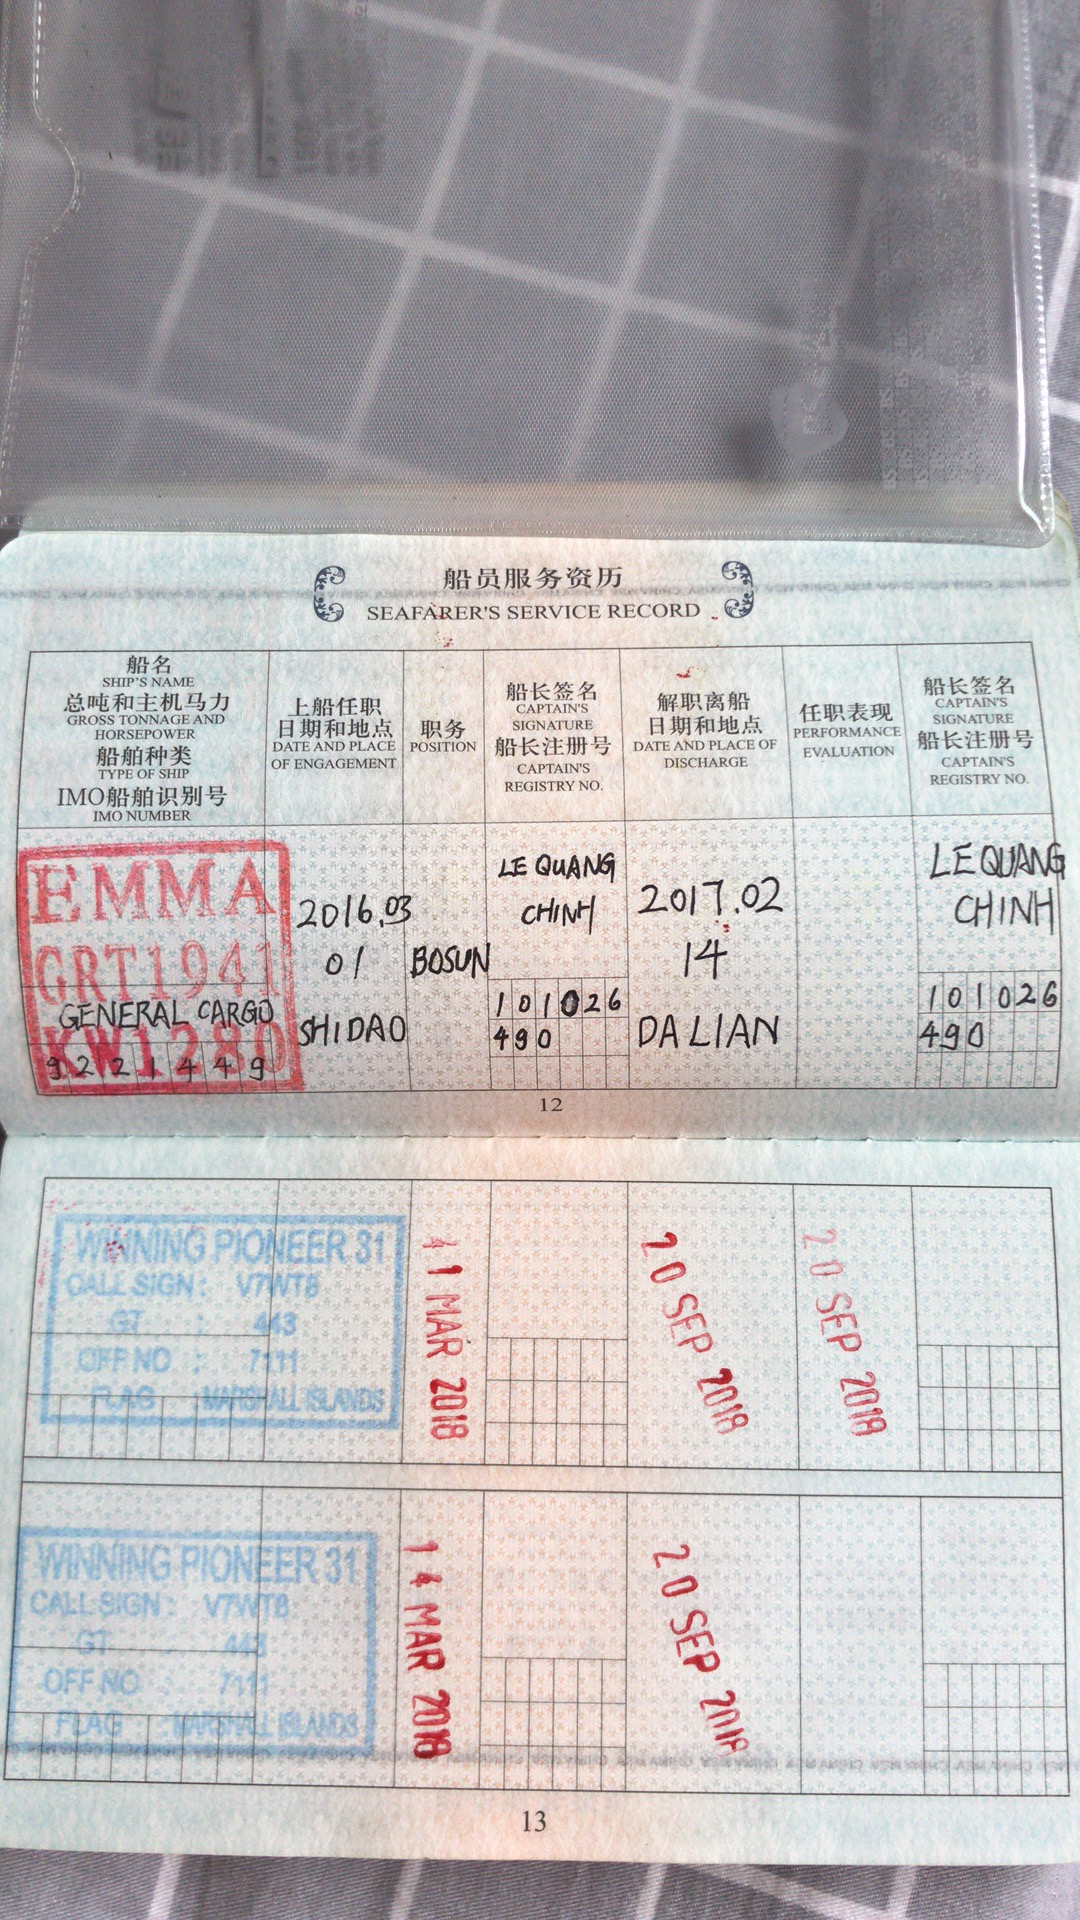 船员服务资历
SEAFARER'S SERVICE RECORD
船名
SHIP'S NAME
总吨和主机马力
GROSS TONNAGE AND
HORSEPOWER
船舶种类
TYPE OF SHIP
IMO船舶识别号
IMO NUMBER
上船任职
日期和地点
DATE AND PLACE
OF ENGAGEMENT
职务
POSITION
船长签名
CAPTAIN'S
SIGNATURE
船长注册号
CAPTAIN'S
REGISTRY NO.
解职离船
日期和地点
DATE AND PLACE OF
DISCHARGE
任职表现
PERFORMANCE
EVALUATION
船长签名
CAPTAIN'S
SIGNATURE
船长注册号
CAPTAIN'S
REGISTRY NO.
EMMA
GRT1941
GENERAL CARGO
KW1280
9221449
2016.03
01
SHIDAO
BOSUN
LE QUANG
CHINH
101026
490
2017.02
14
DALIAN
LE QUANG
CHINH
101026
490
12
WINNING PIONEER 31
CALL SIGN : V7WT8
GT : 443
OFF NO : 7111
FLAG : MARSHALL ISLANDS
11 MAR 2018
20 SEP 2018
20 SEP 2018
WINNING PIONEER 31
CALL SIGN : V7WT8
GT 443
OFF NO : 7111
FLAG : MARSHALL ISLANDS
14 MAR 2018
20 SEP 2018
13